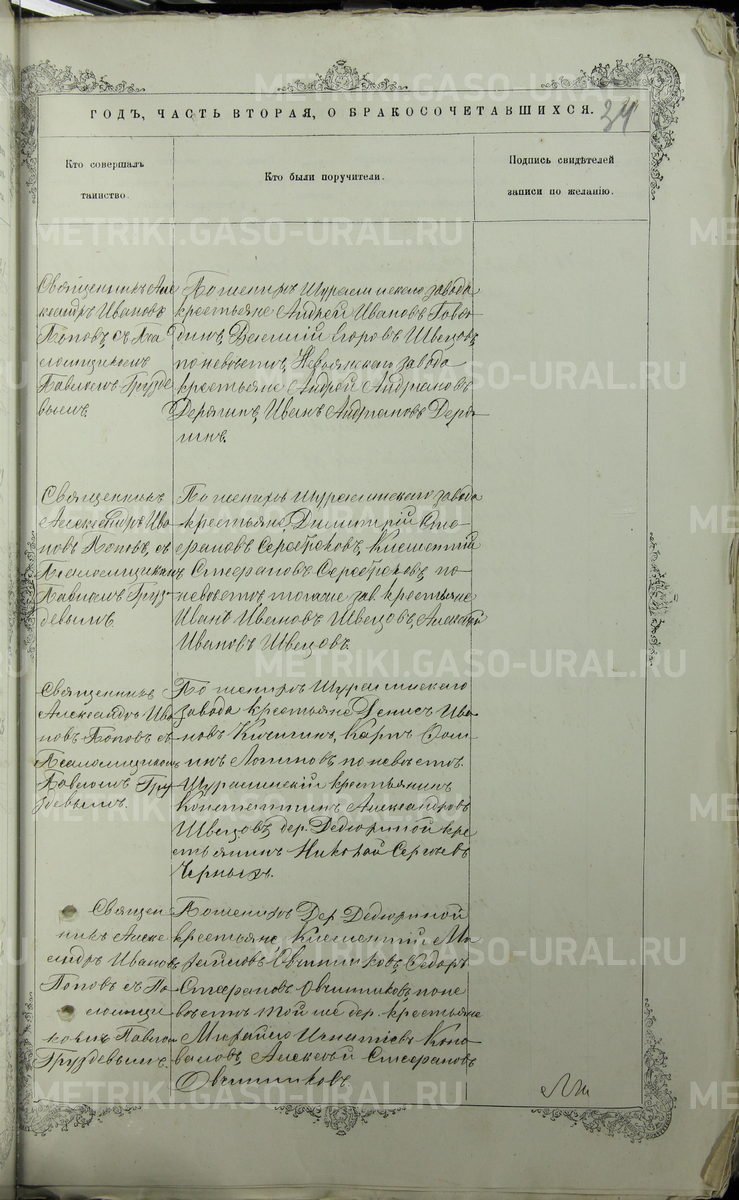 ГОДЪ, ЧАСТЬ ВТОРАЯ, О БРАКОСОЧЕТАВШИХСЯ.
Кто совершалъ
таинство.
Кто были поручители.
Подпись свидѣтелей
записи по желанію.
Священникъ Але
ксандръ Ивановъ
Поповъ, съ Пса
ломщикомъ
Павломъ Грузде
вымъ.
По женихѣ Шуралинскаго завода
крестьяне Андрей Ивановъ
Егоровъ Швецовъ,
по невѣстѣ, Невьянскаго завода
крестьяне Андрей Андріановъ
Иванъ Андріановъ
Священникъ
Александръ Ива
новъ Поповъ, съ
Псаломщикомъ
Павломъ Груз
девымъ
По женихѣ Шуралинскаго завода
крестьяне Димитрій Сте
фановъ Серебряковъ, Климентій
Стефановъ Серебряковъ, по
невѣстѣ тогоже зав. крестьяне
Иванъ Ивановъ Швецовъ, Алексѣй
Ивановъ Швецовъ.
Священникъ
Александръ Ива
новъ Поповъ съ
Псаломщикомъ
Павломъ Гру
здевымъ.
По женихѣ Шуралинскаго
завода крестьяне Денисъ Ива
новъ Карпъ
по невѣстѣ.
Шуралинскій крестьянинъ
Константинъ Александровъ
Швецовъ, дер. Дедюриной кре
стьянинъ Николай Сергѣевъ
Черныхъ.
Священ
никъ Алек
сандръ Ивановъ
Поповъ съ Пса
ломщи
комъ Павлом
Груздевымъ.
По женихѣ Дер Дедюриной
крестьяне Климентій Ми
хайловъ Овчинниковъ, Ѳедоръ
Стефановъ Овчинниковъ, по не
вѣстѣ той же дер. крестьяне
Михайло Игнатіевъ Коно
валовъ, Алексѣй Стефановъ
Овчинниковъ
METRIKI.GASO-URAL.RU